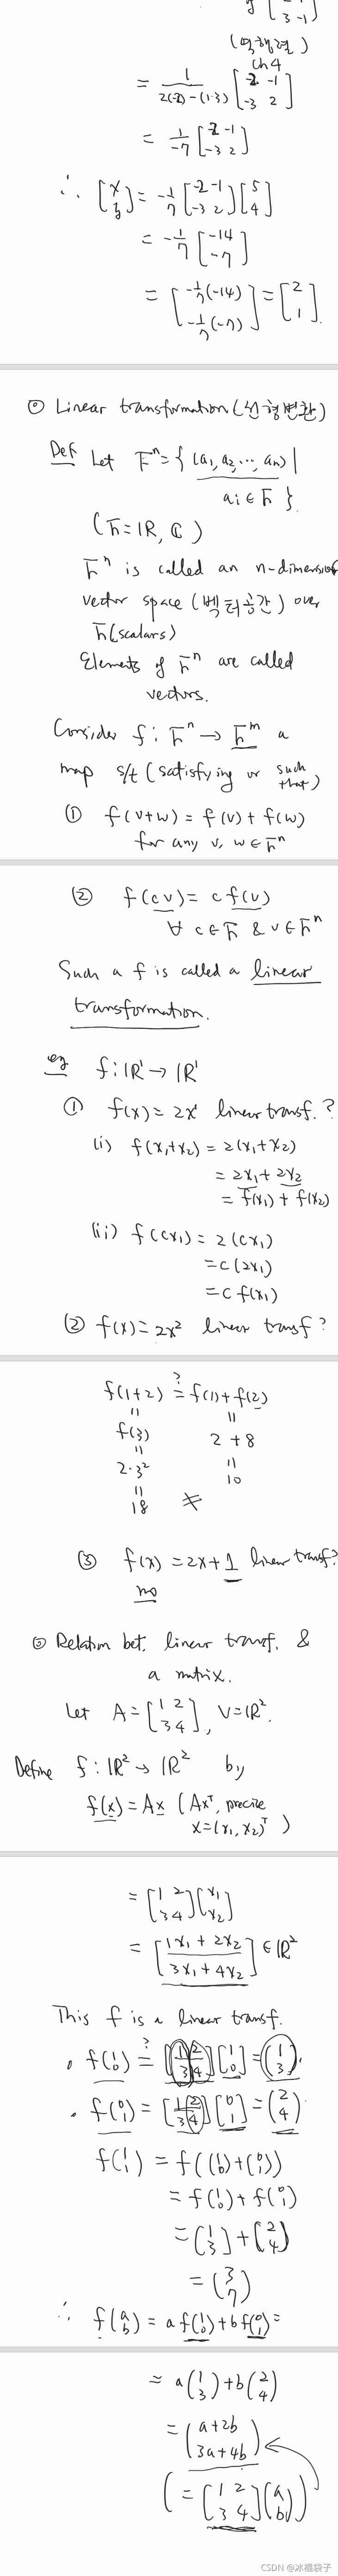 3 -1
(역행렬)
ch 4
= 1/(2(-2)-(1·3)) [-2 -1
-3 2]
= 1/-7 [-2 -1
-3 2]
∴ [x
y] = -1/7 [-2 -1
-3 2] [5
4]
= -1/7 [-14
-7]
= [-1/7(-14)
-1/7(-7)] = [2
1].
⊙ Linear transformation (선형변환)
Def Let Fⁿ = { (a₁, a₂, ..., aₙ) |
aᵢ ∈ F }.
(F = ℝ, ℂ)
Fⁿ is called an n-dimension
vector space (벡터공간) over
F (scalars)
Elements of Fⁿ are called
vectors.
Consider f : Fⁿ → Fᵐ a
map s/t (satisfying or such
that)
① f(v+w) = f(v) + f(w)
for any v, w ∈ Fⁿ
② f(cv) = c f(v)
∀ c ∈ F & v ∈ Fⁿ
Such a f is called a linear
transformation.
eg f : ℝ¹ → ℝ¹
① f(x) = 2x¹ linear transf.?
(i) f(x₁+x₂) = 2(x₁+x₂)
= 2x₁ + 2x₂
= f(x₁) + f(x₂)
(ii) f(cx₁) = 2(cx₁)
= c(2x₁)
= c f(x₁)
② f(x) = 2x² linear transf?
?
f(1+2) = f(1) + f(2)
" "
f(3) 2 + 8
" "
2·3² 10
"
18 ≠
③ f(x) = 2x + 1 linear transf?
no
⊙ Relation bet. linear transf. &
a matrix.
Let A = [1 2
3 4], V = ℝ².
Define f : ℝ² → ℝ² by
f(x) = Ax (Axᵀ, precise
x = (x₁, x₂)ᵀ)
= [1 2
3 4] [x₁
x₂]
= [1x₁ + 2x₂
3x₁ + 4x₂] ∈ ℝ²
This f is a linear transf.
• f(1
0) ?= [1 2
3 4] [1
0] = (1
3).
• f(0
1) = [1 2
3 4] [0
1] = (2
4).
f(1
1) = f((1
0) + (0
1))
= f(1
0) + f(0
1)
= (1
3) + (2
4)
= (3
7)
∴ f(a
b) = a f(1
0) + b f(0
1) =
= a(1
3) + b(2
4)
= (a+2b
3a+4b)
(= [1 2
3 4] (a
b))
CSDN @冰禔袋子